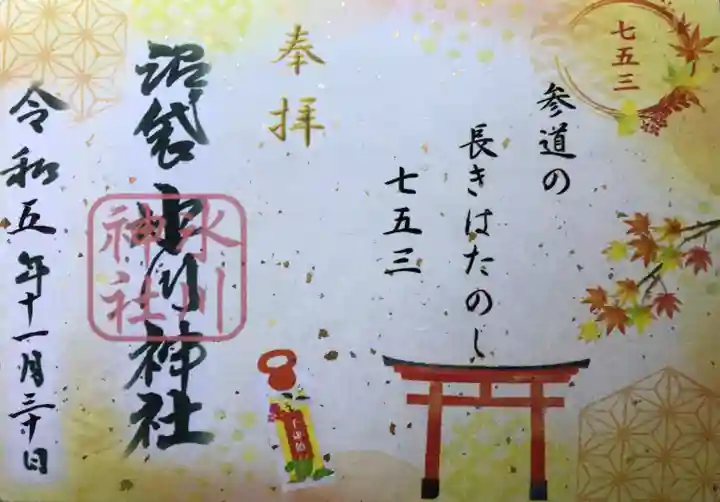 七五三
参道の
長きはたのし
七五三
奉拝
沼袋氷川神社
氷川
神社
令和五年十一月三十日
千歳飴